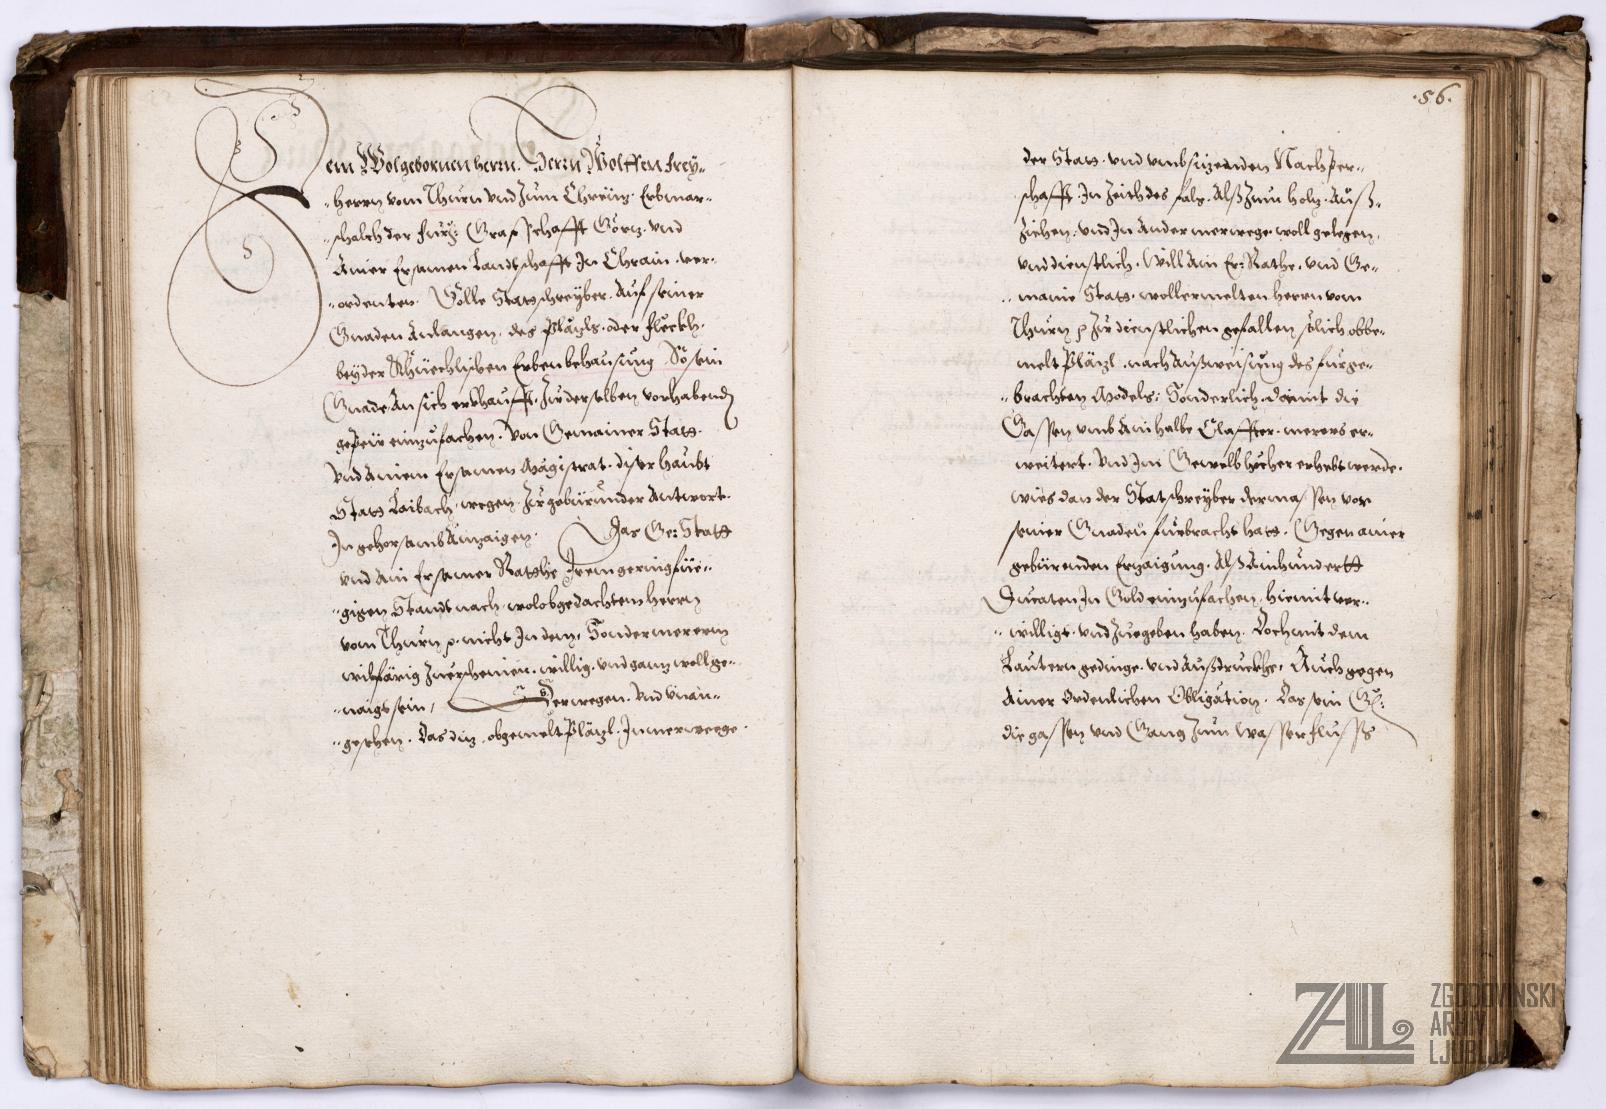 Dem Wolgebornen herrn. Herrn Wolffen frey„
„ herrn vom Thurn vnd Zum Chreüz. Erbmar„
„ schalch der fürz: Graffschafft Görz. vnd
Ainer Ersamen Landtschafft In Chrain. ver„
„ ordenten. Solle Statschreyber. Auf seiner
Gnaden Anlangen. des Pläzls. oder fleckh.
beyder Khüechlischen Erbenbehausung So sein
Gnade. An sich erkhaufft. Zu derselben vorhabend
gepeü einzufachen. Von Gemainer Stats.
Vnd Ainem Ersamen Magistrat. diser haubt
Stats Laibach. wegen. Zu gebürunder Antwort.
In gehorsamb Anzaigen. Das Ge: Statt
vnd Ain Ersamer Rathe Irem geringfüe„
„ gigen Standt nach. wolobgedachtem herrn
vom Thurn p. nicht In dem, Sonder mererm
wilfärig Zuerscheinen. willig. vnd ganz woll ge„
„ naigt sein, Derwegen. Vnd vnan„
„ gesehen. Das diz. obgemelt Pläzl. In merweege
.56.
der Stats. vnd vmbsizenden Nachper„
schafft. In Zeith des fals. Alß Zum holz. Auß„
Ziehen. vnd In Ander merwege. woll gelegen.
vnd dienstlich. Will Ain Er: Rathe. vnd Ge„
„ maine Stats. wollermelten herrn vom
Thurn p Zu dienstlichen gefallen solich obbe„
melt Pläzl. nach Außweisung des fürge„
„ brachten Models: Sonderlich. damit die
Gassen vmb Ain halbe Clafter. merers er„
weitert. Vnd Im Gewelb hocher erhebt werde.
wies dan der Statschreyber dermassen vor
seiner Gnaden fürbracht hatt. Gegen ainer
gebürenden Erzaigung. Alß Ainhundertt
Ducaten In Gold einzufachen, hiemit ver„
„ willigt. vnd Zuegeben haben. Doch mit dem
Lautern gedinge. vnd Außdruckhe, Auch gegen
Ainer Ordenlichen Obligation. Das sein G:
die gassen vnd Gang Zum Wasserfluss
ZAL
ZGODOVINSKI
ARHIV
LJUBLJA